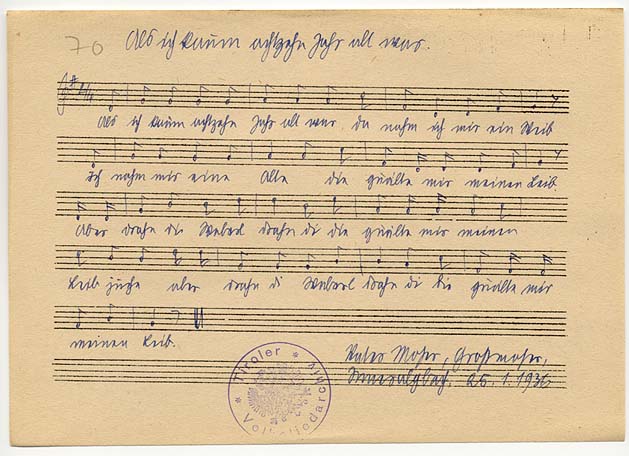 70
Als ich kaum achtzehn Jahr alt war.
Als ich kaum achtzehn Jahr alt war da nahm ich mir ein Weib
Ich nahm mir eine Alte die quälte mir meinen Leib.
Aber drahn di Weberl drahn di die quälte mir meinen
Leib juche aber drahn di Weberl drahn di die quälte mir
meinen Leib.
Vater Moser, Großmoser,
25.1.1936
* Tiroler * Volksliedarchiv